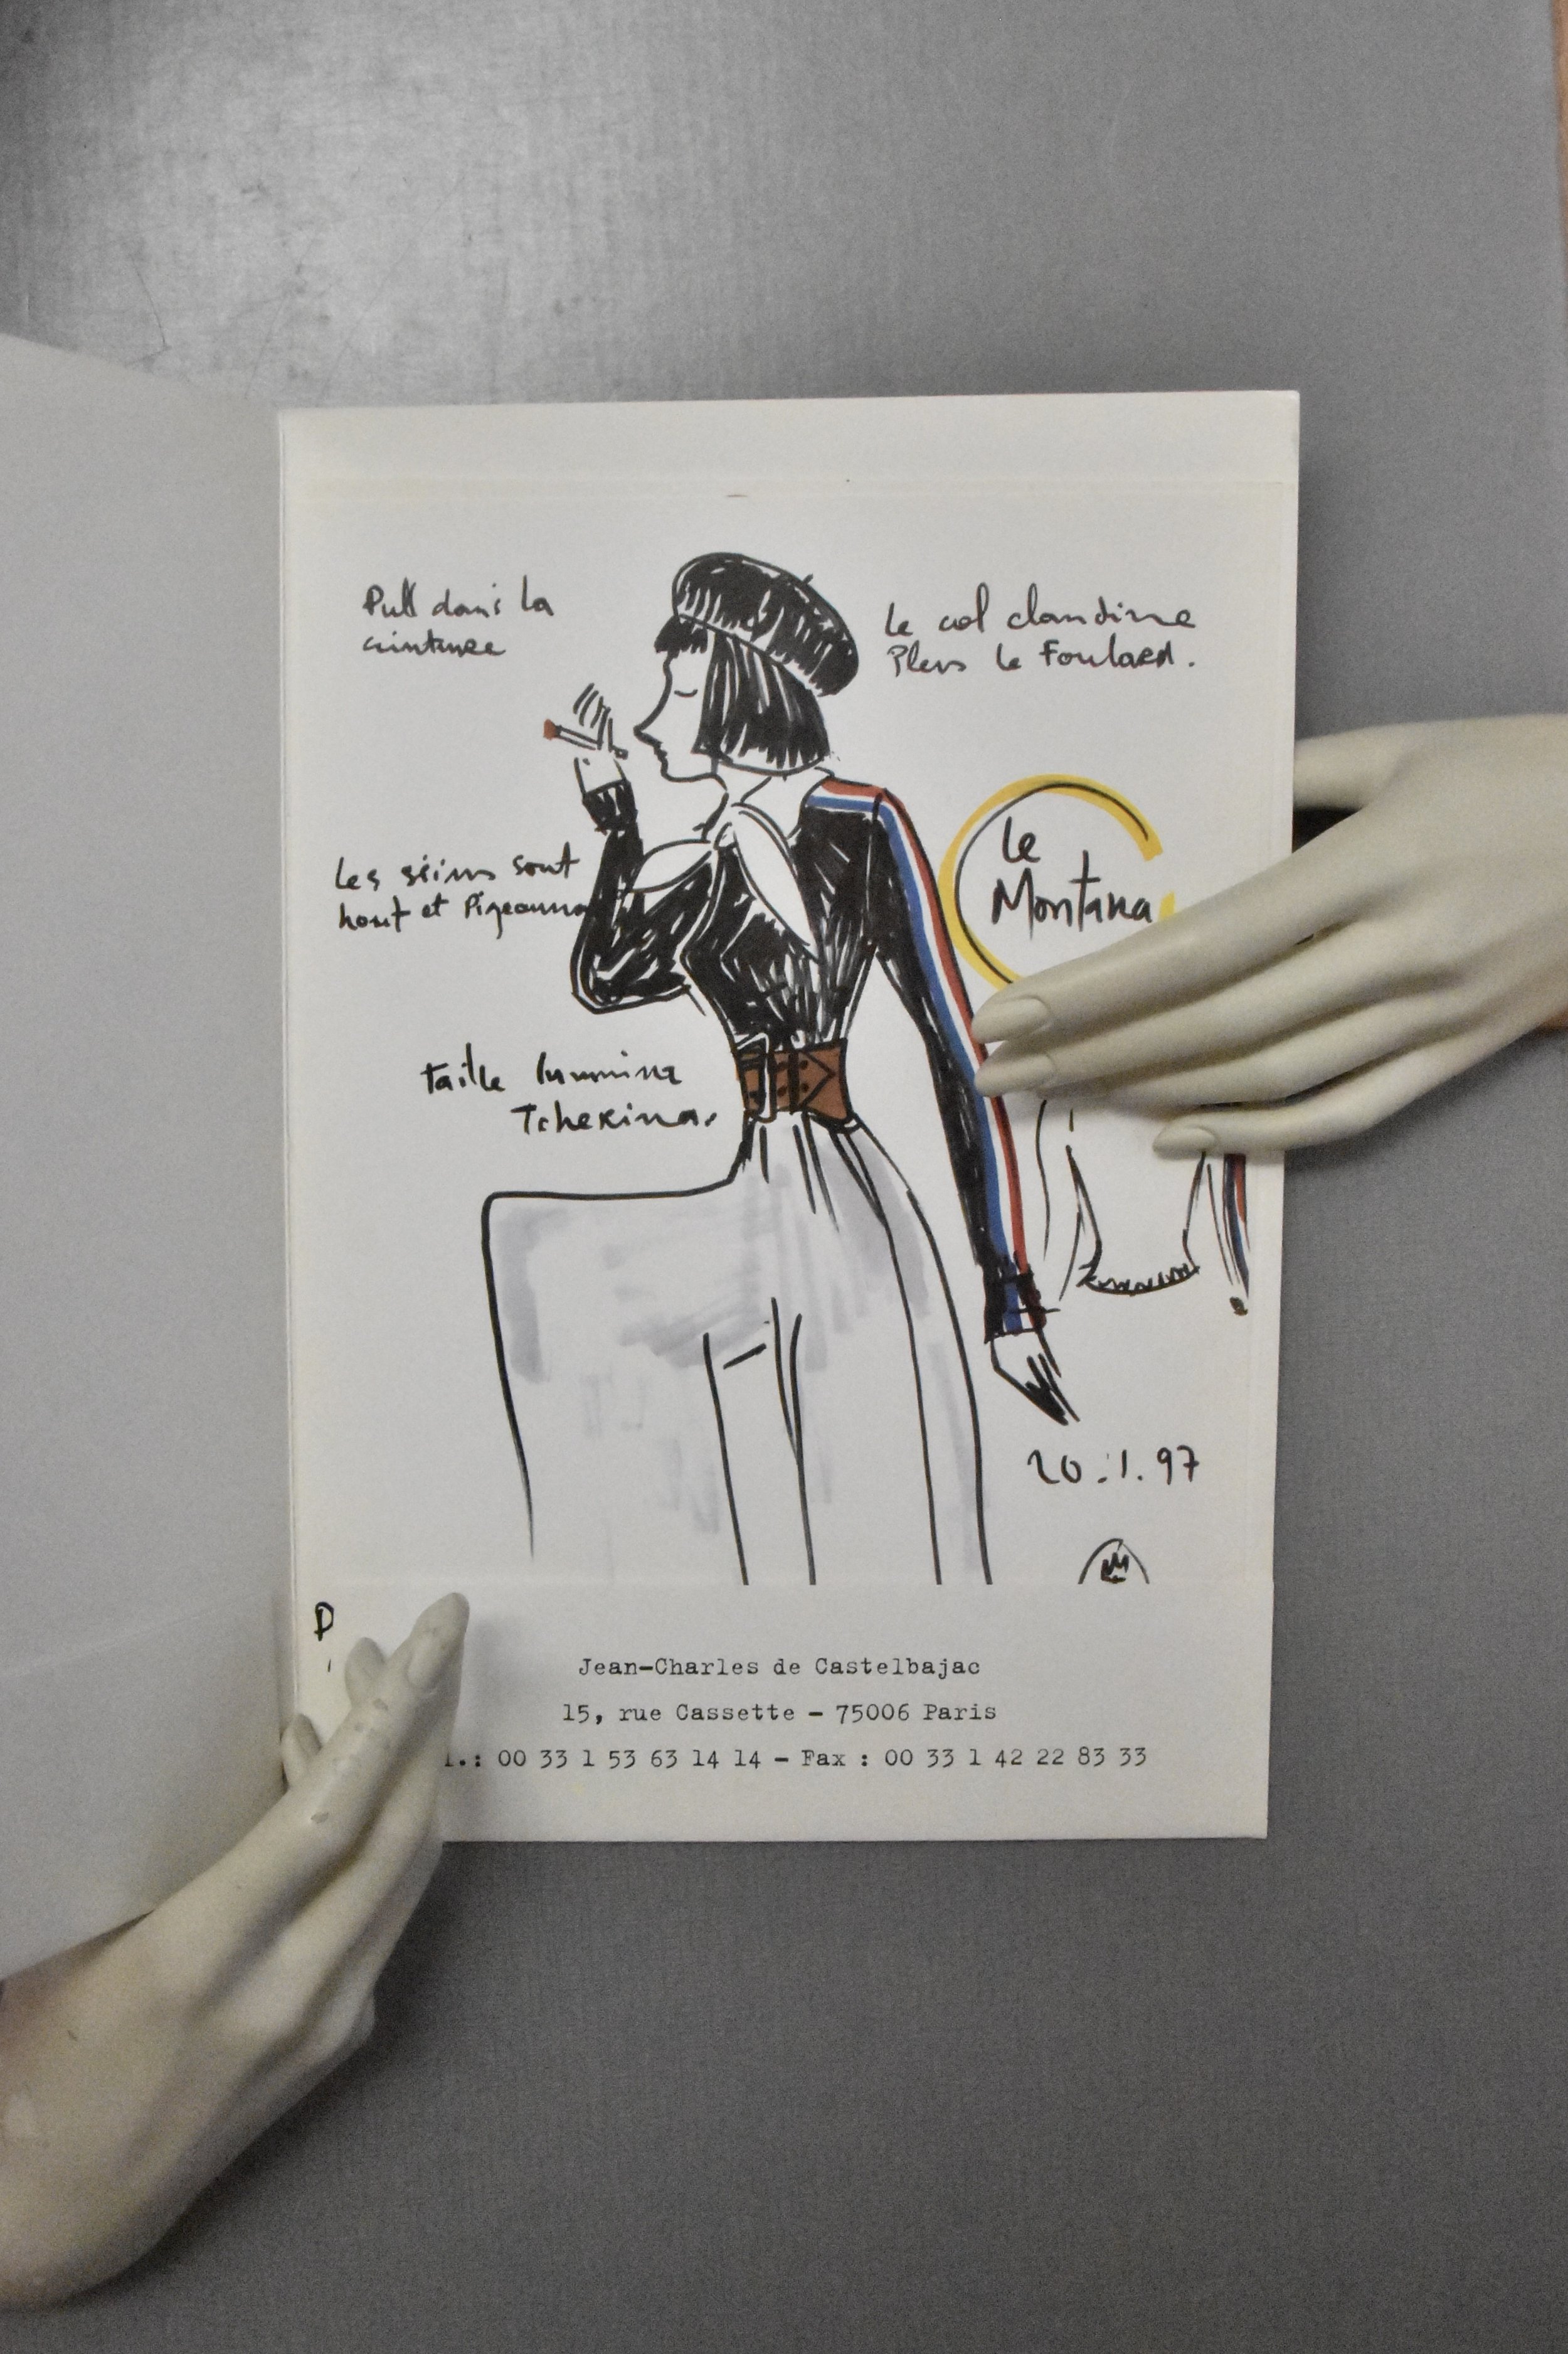 Pull dans la
ceinture
Le col claudine
Plus le Foulard.
Le
Montana
Les seins sont
haut et Pigeonna
taille
20.1.97
P
Jean-Charles de Castelbajac
15, rue Cassette - 75006 Paris
.: 00 33 1 53 63 14 14 - Fax : 00 33 1 42 22 83 33